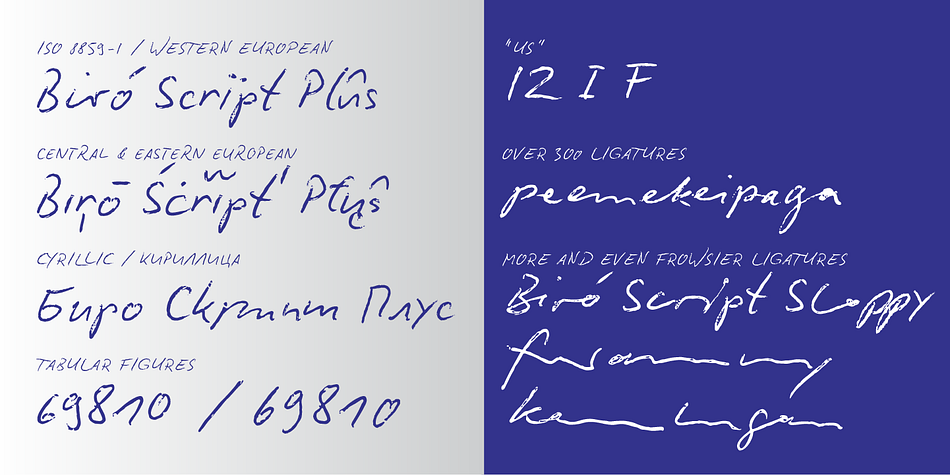 ISO 8859-1 / WESTERN EUROPEAN
Biró Scrïpt Plûs
CENTRAL & EASTERN EUROPEAN
Bıŗō Płųŝ
CYRILLIC / КИРИЛЛИЦА
Биро Скрипт Плус
TABULAR FIGURES
69810 / 69810
"US"
12 I F
OVER 300 LIGATURES
peemekeipaga
MORE AND EVEN FROWSIER LIGATURES
Biró Script Sloppy